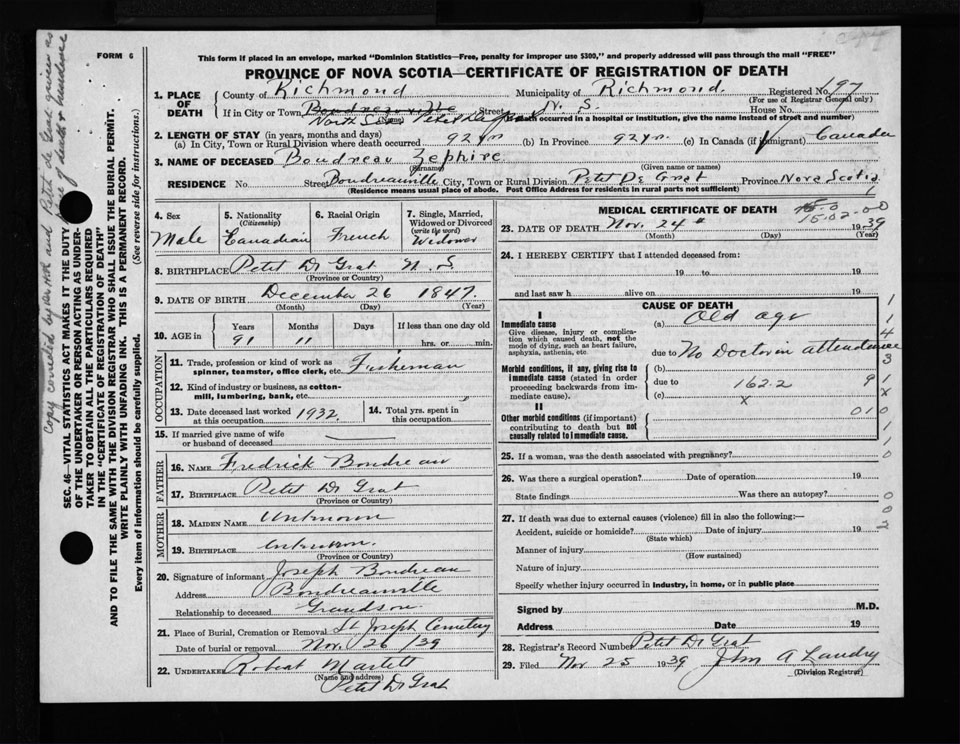 FORM 6
This form if placed in an envelope, marked "Dominion Statistics—Free, penalty for improper use $300," and properly addressed will pass through the mail "FREE"
PROVINCE OF NOVA SCOTIA—CERTIFICATE OF REGISTRATION OF DEATH
SEC. 46—VITAL STATISTICS ACT MAKES IT THE DUTY
OF THE UNDERTAKER OR PERSON ACTING AS UNDER-
TAKER TO OBTAIN ALL THE PARTICULARS REQUIRED
IN THE "CERTIFICATE OF REGISTRATION OF DEATH"
AND TO FILE THE SAME WITH THE DIVISION REGISTRAR WHO SHALL ISSUE THE BURIAL PERMIT.
WRITE PLAINLY WITH UNFADING INK. THIS IS A PERMANENT RECORD.
Every item of information should be carefully supplied. (See reverse side for instructions.)
1. PLACE OF DEATH
County of Richmond Municipality of Richmond. Registered No. 197
(For use of Registrar General only)
If in City or Town Street N. S. House No.
(Name) death occurred in a hospital or institution, give the name instead of street and number)
2. LENGTH OF STAY (in years, months and days)
(a) In City, Town or Rural Division where death occurred 92 yr (b) In Province 92 yr. (c) In Canada (if immigrant) Canada
3. NAME OF DECEASED Boudreau Zephire
(Surname) (Given name or names)
RESIDENCE No. Street Boudreauville City, Town or Rural Division Petit De Grat Province Nova Scotia
(Residence means usual place of abode. Post Office Address for residents in rural parts not sufficient)
4. Sex Male
5. Nationality (Citizenship) Canadian
6. Racial Origin French
7. Single, Married, Widowed or Divorced (write the word) Widower
8. BIRTHPLACE Petit D Grat N. S.
(Province or Country)
9. DATE OF BIRTH December 26 1847
(Month) (Day) (Year)
10. AGE in Years 91 Months 11 Days If less than one day old hrs. or min.
OCCUPATION
11. Trade, profession or kind of work as spinner, teamster, office clerk, etc. Fisherman
12. Kind of industry or business, as cotton-mill, lumbering, bank, etc.
13. Date deceased last worked at this occupation 1932
14. Total yrs. spent in this occupation
15. If married give name of wife or husband of deceased
FATHER
16. NAME Fredrick Boudreau
17. BIRTHPLACE Petit D Grat
(Province or Country)
MOTHER
18. MAIDEN NAME Unknown
19. BIRTHPLACE
(Province or Country)
20. Signature of informant Joseph Boudreau
Address Boudreauville
Relationship to deceased Grandson.
21. Place of Burial, Cremation or Removal St Joseph Cemetery
Date of burial or removal Nov. 26 / 39
22. UNDERTAKER Robert Martell
(Name and address)
Petit D Grat
MEDICAL CERTIFICATE OF DEATH
15.02.00
23. DATE OF DEATH Nov. 24th 1939
(Month) (Day) (Year)
24. I HEREBY CERTIFY that I attended deceased from:
19 to 19
and last saw h alive on 19
CAUSE OF DEATH
I
Immediate cause
Give disease, injury or complication which caused death, not the mode of dying, such as heart failure, asphyxia, asthenia, etc.
(a) Old age
due to No Doctor in attendance
Morbid conditions, if any, giving rise to immediate cause (stated in order proceeding backwards from immediate cause).
(b)
due to 162.2
(c) x
II
Other morbid conditions (if important) contributing to death but not causally related to immediate cause.
25. If a woman, was the death associated with pregnancy?
26. Was there a surgical operation? Date of operation 19
State findings Was there an autopsy?
27. If death was due to external causes (violence) fill in also the following:—
Accident, suicide or homicide? Date of injury 19
(State which)
Manner of injury
(How sustained)
Nature of injury
Specify whether injury occurred in industry, in home, or in public place
Signed by M.D.
Address Date 19
28. Registrar's Record Number Petit D Grat
29. Filed Nov 25 1939 John A Landry
(Division Registrar)